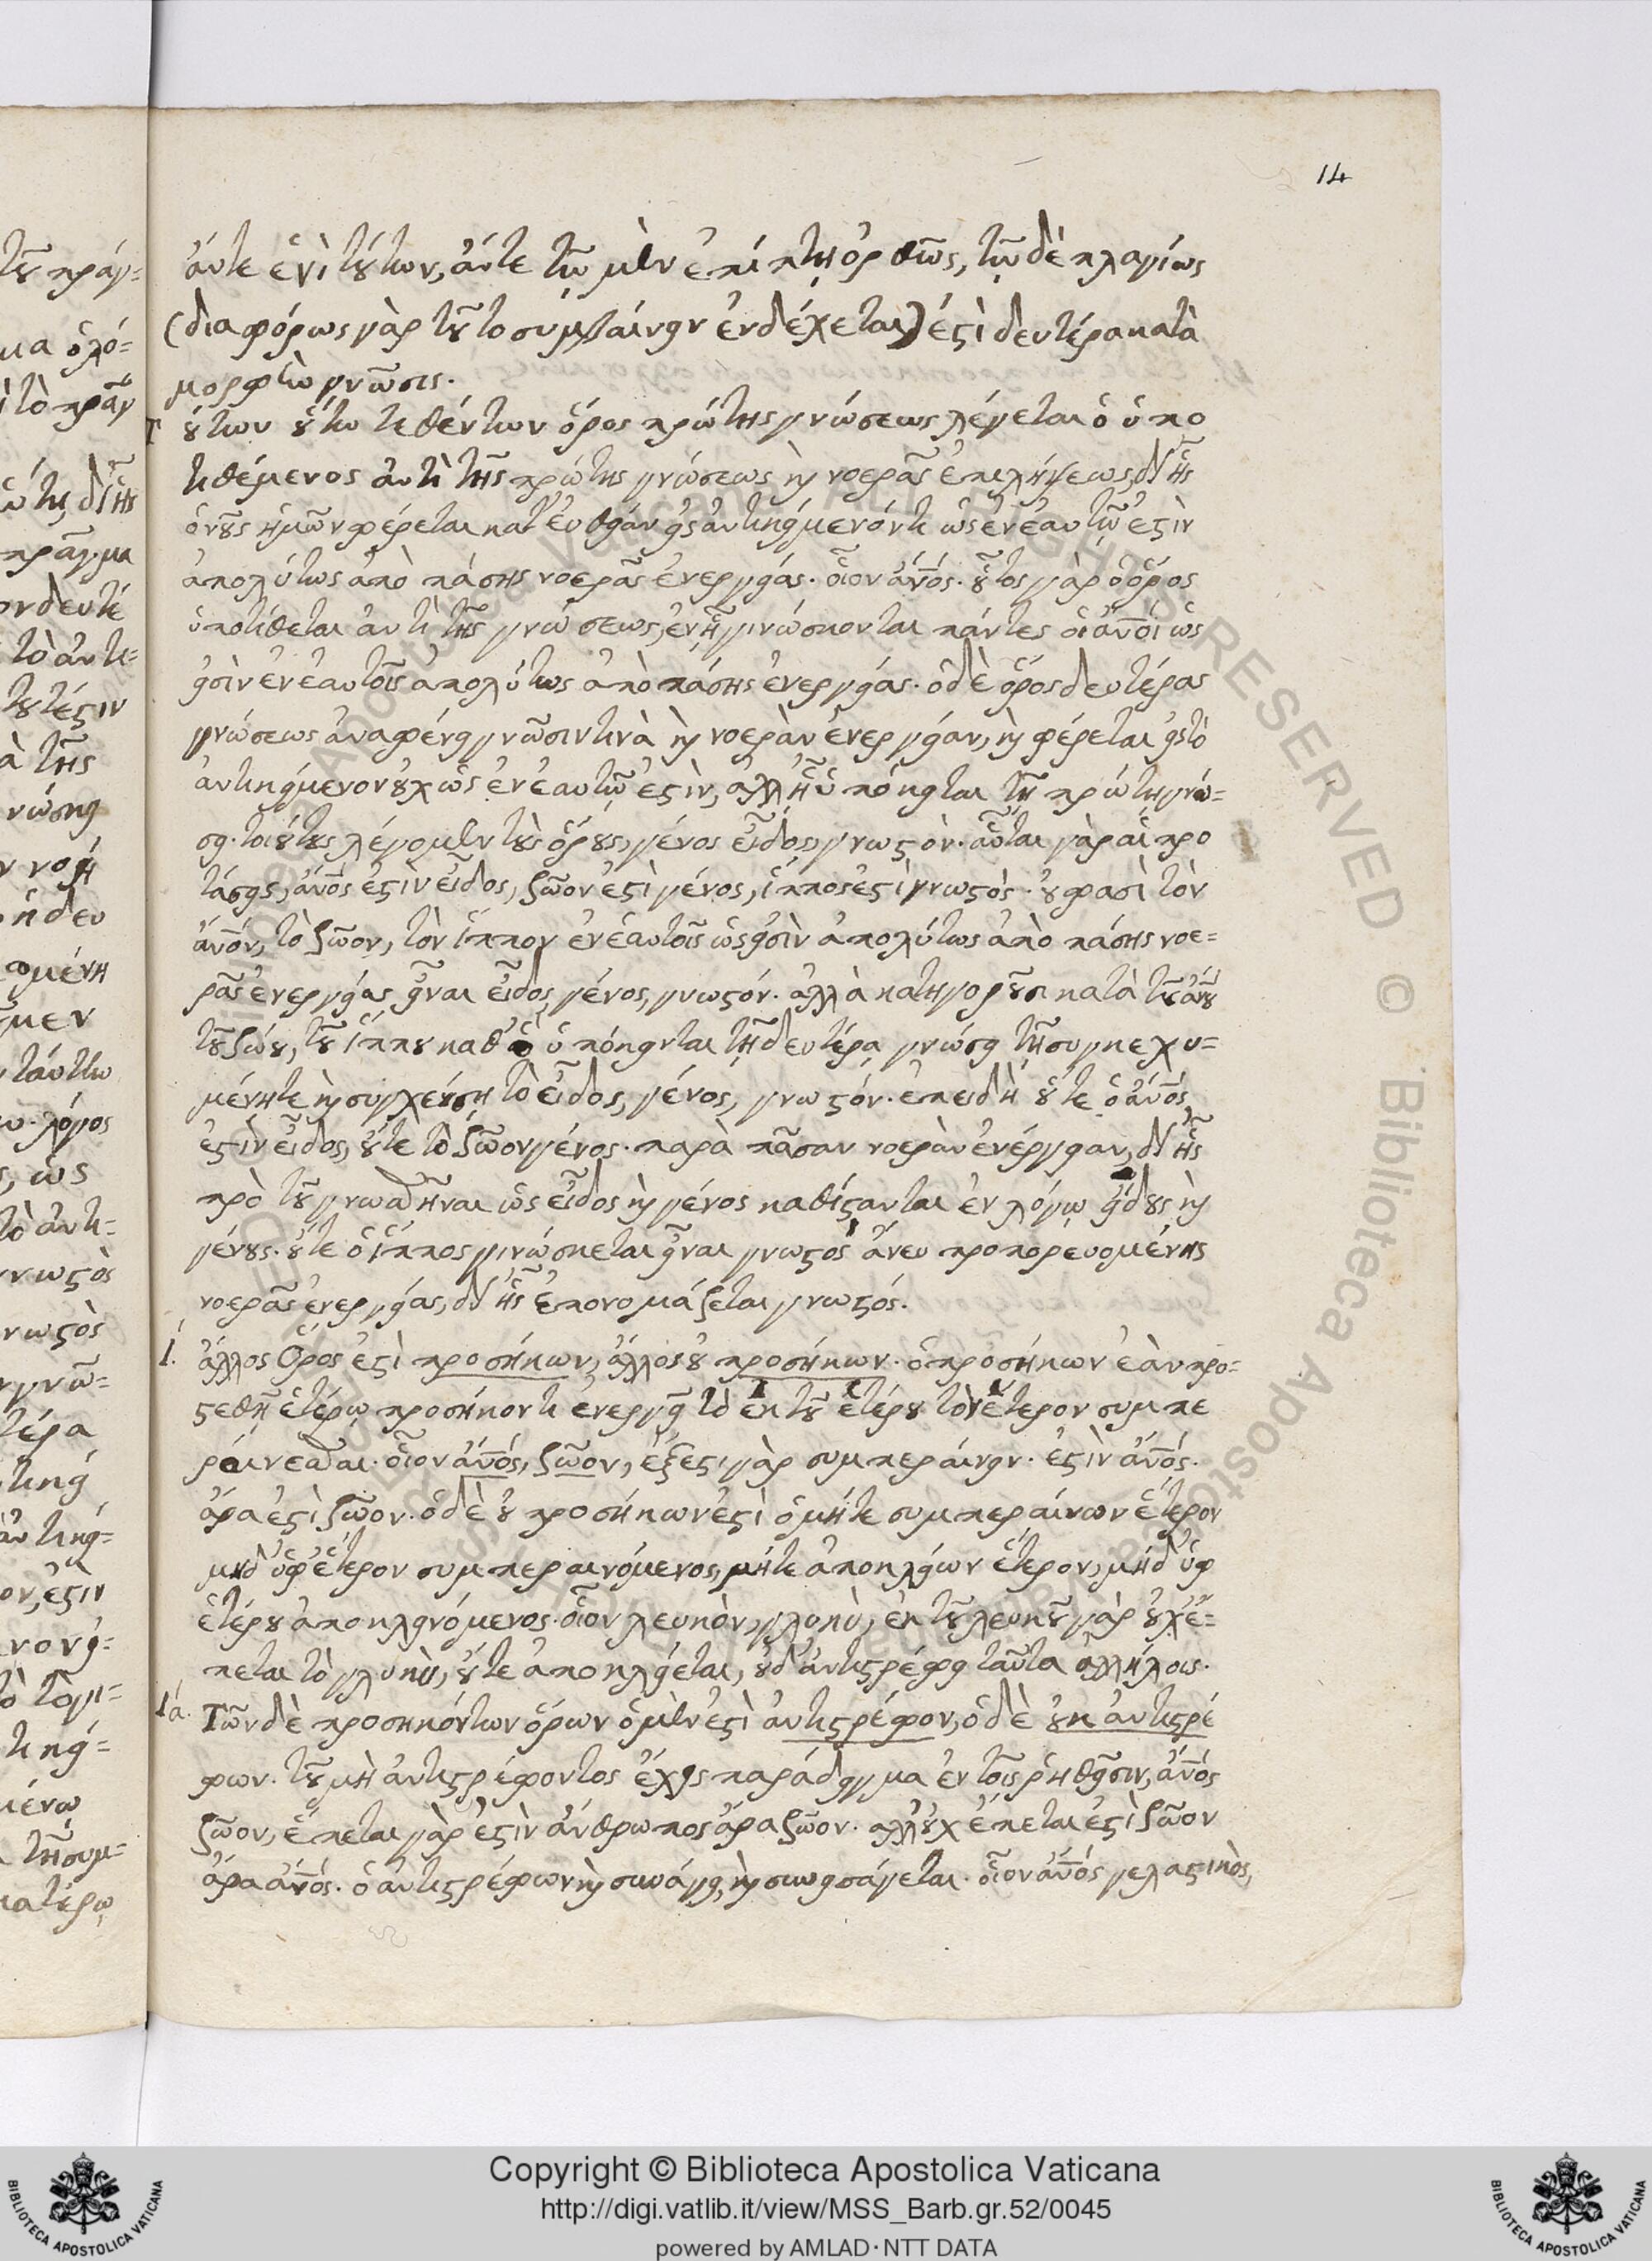 14
ἄντε ἑνὶ τούτων, ἄντε τῷ μὲν ἐπίπτῃ ὀρθῶς, τῷ δὲ πλαγίως
(διαφόρως γὰρ τοῦτο συμβαίνειν ἐνδέχεται) ἐστὶ δευτέρα κατὰ
μορφὴν γνῶσις.
Τούτων οὕτω τεθέντων ὅρος πρώτης γνώσεως λέγεται ὁ ὑπο
τιθέμενος ἀντὶ τῆς πρώτης γνώσεως καὶ νοερᾶς ἐπιλήψεως, δι' ἧς
ὁ νοῦς ἡμῶν φέρεται κατ' εὐθεῖαν εἰς ἀντικείμενόν τι ὡς ἐν ἑαυτῷ ἐστὶν
ἀπολύτως ἀπὸ πάσης νοερᾶς ἐνεργείας. οἷον ἄνος. οὗτος γὰρ ὁ ὅρος
ὑποτίθεται ἀντὶ τῆς γνώσεως, ἐν ᾗ γινώσκονται πάντες οἱ ἄνοι ὡς
εἰσὶν ἐν ἑαυτοῖς ἀπολύτως ἀπὸ πάσης ἐνεργείας. ὁ δὲ ὅρος δευτέρας
γνώσεως ἀναφένει γνῶσιν τινὰ καὶ νοερὰν ἐνεργείαν, καὶ φέρεται εἰς τὸ
ἀντικείμενον οὐχ ὡς ἐν ἑαυτῷ ἐστὶν, ἀλλ' ᾗ ὑπόκειται τῇ πρώτῃ γνώ-
σει. τοιούτους λέγομεν τοὺς ὅρους, γένος εἶδος, γνωστὸν. αὗται γὰρ αἱ προ
τάσεις, ἄνος ἐστὶν εἶδος, ζῶον ἐστὶ γένος, ἵππος ἐστὶ γνωστὸς. οὐ φασὶ τὸν
ἄνον, τὸ ζῶον, τὸν ἵππον ἐν ἑαυτοῖς ὡς εἰσὶν ἀπολύτως ἀπὸ πάσης νοε-
ρᾶς ἐνεργείας εἶναι εἶδος, γένος, γνωστόν. ἀλλὰ κατηγοροῦσι κατὰ τοῦ ἄνου
τοῦ ζώου, τοῦ ἵππου καθ' ὃ ὑπόκεινται τῇ δευτέρᾳ γνώσει τῇ συγκεχυ-
μένῃ τε καὶ συγχεούσῃ τὸ εἶδος, γένος, γνωστόν. ἐπειδὴ οὔτε ὁ ἄνος
ἐστὶν εἶδος, οὔτε τὸ ζῶον γένος. παρὰ πᾶσαν νοερὰν ἐνέργειαν, δι' ἧς
πρὸ τοῦ γνωσθῆναι ὡς εἶδος καὶ γένος καθίστανται ἐν λόγῳ εἴδους καὶ
γένους. οὔτε ὁ ἵππος γινώσκεται εἶναι γνωστὸς ἄνευ προπορευομένης
νοερᾶς ἐνεργείας, δι' ἧς ἐπονομάζεται γνωστός.
ί. ἄλλος Ὅρος ἐστὶ προσήκων, ἄλλος οὐ προσήκων. ὁ προσήκων ἐὰν προ-
στεθῇ ἑτέρῳ προσήκοντι ἐνεργεῖ τὸ ἐκ τοῦ ἑτέρου τὸν ἕτερον συμπε
ραίνεσθαι. οἷον ἄνος, ζῶον, ἔξεστι γὰρ συμπεραίνειν. ἐστὶν ἄνος.
ἄρα ἐστὶ ζῶον. ὁ δὲ οὐ προσήκων ἐστὶ ὁ μήτε συμπεραίνων ἕτερον
μηδ' ὑφ' ἕτερον συμπεραινόμενος, μήτε ἀποκλείων ἕτερον, μηδ' ὑφ
ἑτέρου ἀποκλεινόμενος. οἷον λευκὸν, γλυκὺ, ἐκ τοῦ λευκοῦ γὰρ οὐχ ἕ-
πεται τὸ γλυκὺ, οὔτε ἀποκλείεται, οὐδ' ἀντιστρέφει ταῦτα ἀλλήλοις.
ια. Τῶν δὲ προσηκόντων ὅρων ὁ μὲν ἐστὶ ἀντιστρέφον, ὁ δὲ οὐκ ἀντιστρέ
φων. τοῦ μὴ ἀντιστρέφοντος ἔχεις παράδειγμα ἐν τοῖς ῥηθεῖσιν, ἄνος
ζῶον, ἕπεται γὰρ ἐστὶν ἄνθρωπος ἄρα ζῶον. ἀλλ' οὐχ ἕπεται ἐστὶ ζῶον
ἄρα ἄνος. ὁ ἀντιστρέφων καὶ συνάγει, καὶ συνεισάγεται. οἷον ἄνος γελαστικὸς,
Copyright © Biblioteca Apostolica Vaticana
http://digi.vatlib.it/view/MSS_Barb.gr.52/0045
powered by AMLAD·NTT DATA